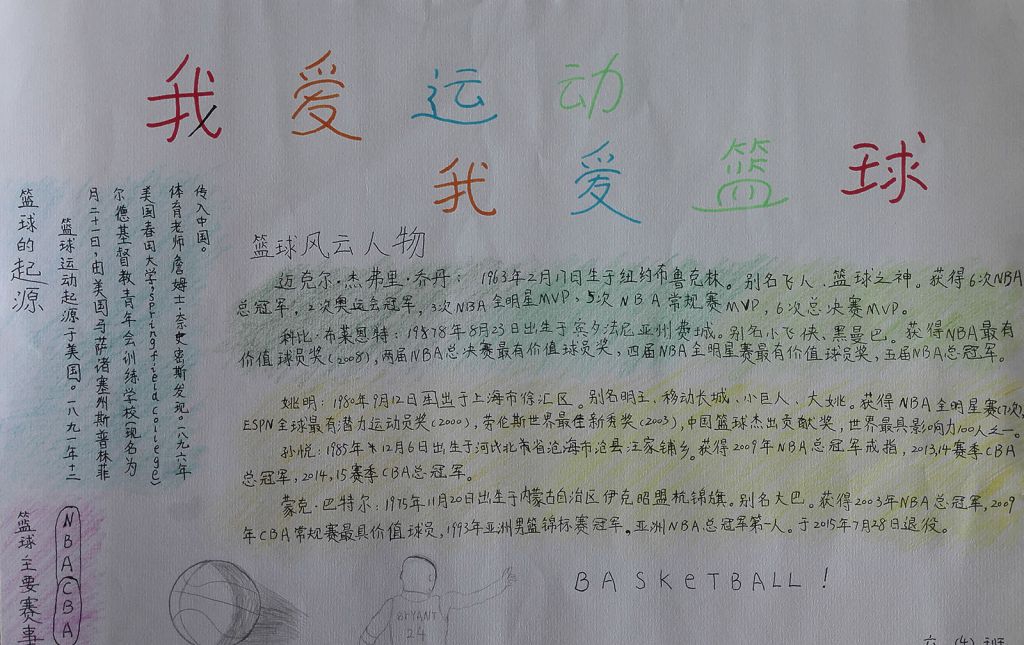 我爱运动
我爱篮球
篮球的起源
篮球运动起源于美国。一八九一年十二
月二十一日,由美国马萨诸塞州斯普林菲
尔德基督教青年会训练学校(现名为
美国春田大学,springfield college)
体育老师詹姆士·奈史密斯发现。一八九六年
传入中国。
篮球风云人物
迈克尔·杰弗里·乔丹:1963年2月17日生于纽约布鲁克林。别名飞人、篮球之神。获得6次NBA
总冠军,2次奥运会冠军,3次NBA全明星MVP、5次NBA常规赛MVP,6次总决赛MVP。
科比·布莱恩特:1978年8月23日出生于宾夕法尼亚州费城。别名小飞侠、黑曼巴。获得NBA最有
价值球员奖(2008),两届NBA总决赛最有价值球员奖,四届NBA全明星赛最有价值球员奖,五届NBA总冠军。
姚明:1980年9月12日出于上海市徐汇区。别名明王、移动长城、小巨人、大姚。获得NBA全明星赛(7次)
ESPN全球最有潜力运动员奖(2000),劳伦斯世界最佳新秀奖(2003),中国篮球杰出贡献奖,世界最具影响力100人之一。
孙悦:1985年12月6日出生于河北省沧海市沧县汪家铺乡。获得2009年NBA总冠军戒指,2013,14赛季CBA
总冠军,2014,15赛季CBA总冠军。
蒙克·巴特尔:1975年11月20日出生于内蒙古自治区伊克昭盟杭锦旗。别名大巴。获得2003年NBA总冠军,2009
年CBA常规赛最具价值球员,1993年亚洲男篮锦标赛冠军。亚洲NBA总冠军第一人。于2015年7月28日退役。
篮球主要赛事
NBA
CBA
BRYANT
24
BASKeTBALL!
六(4)班